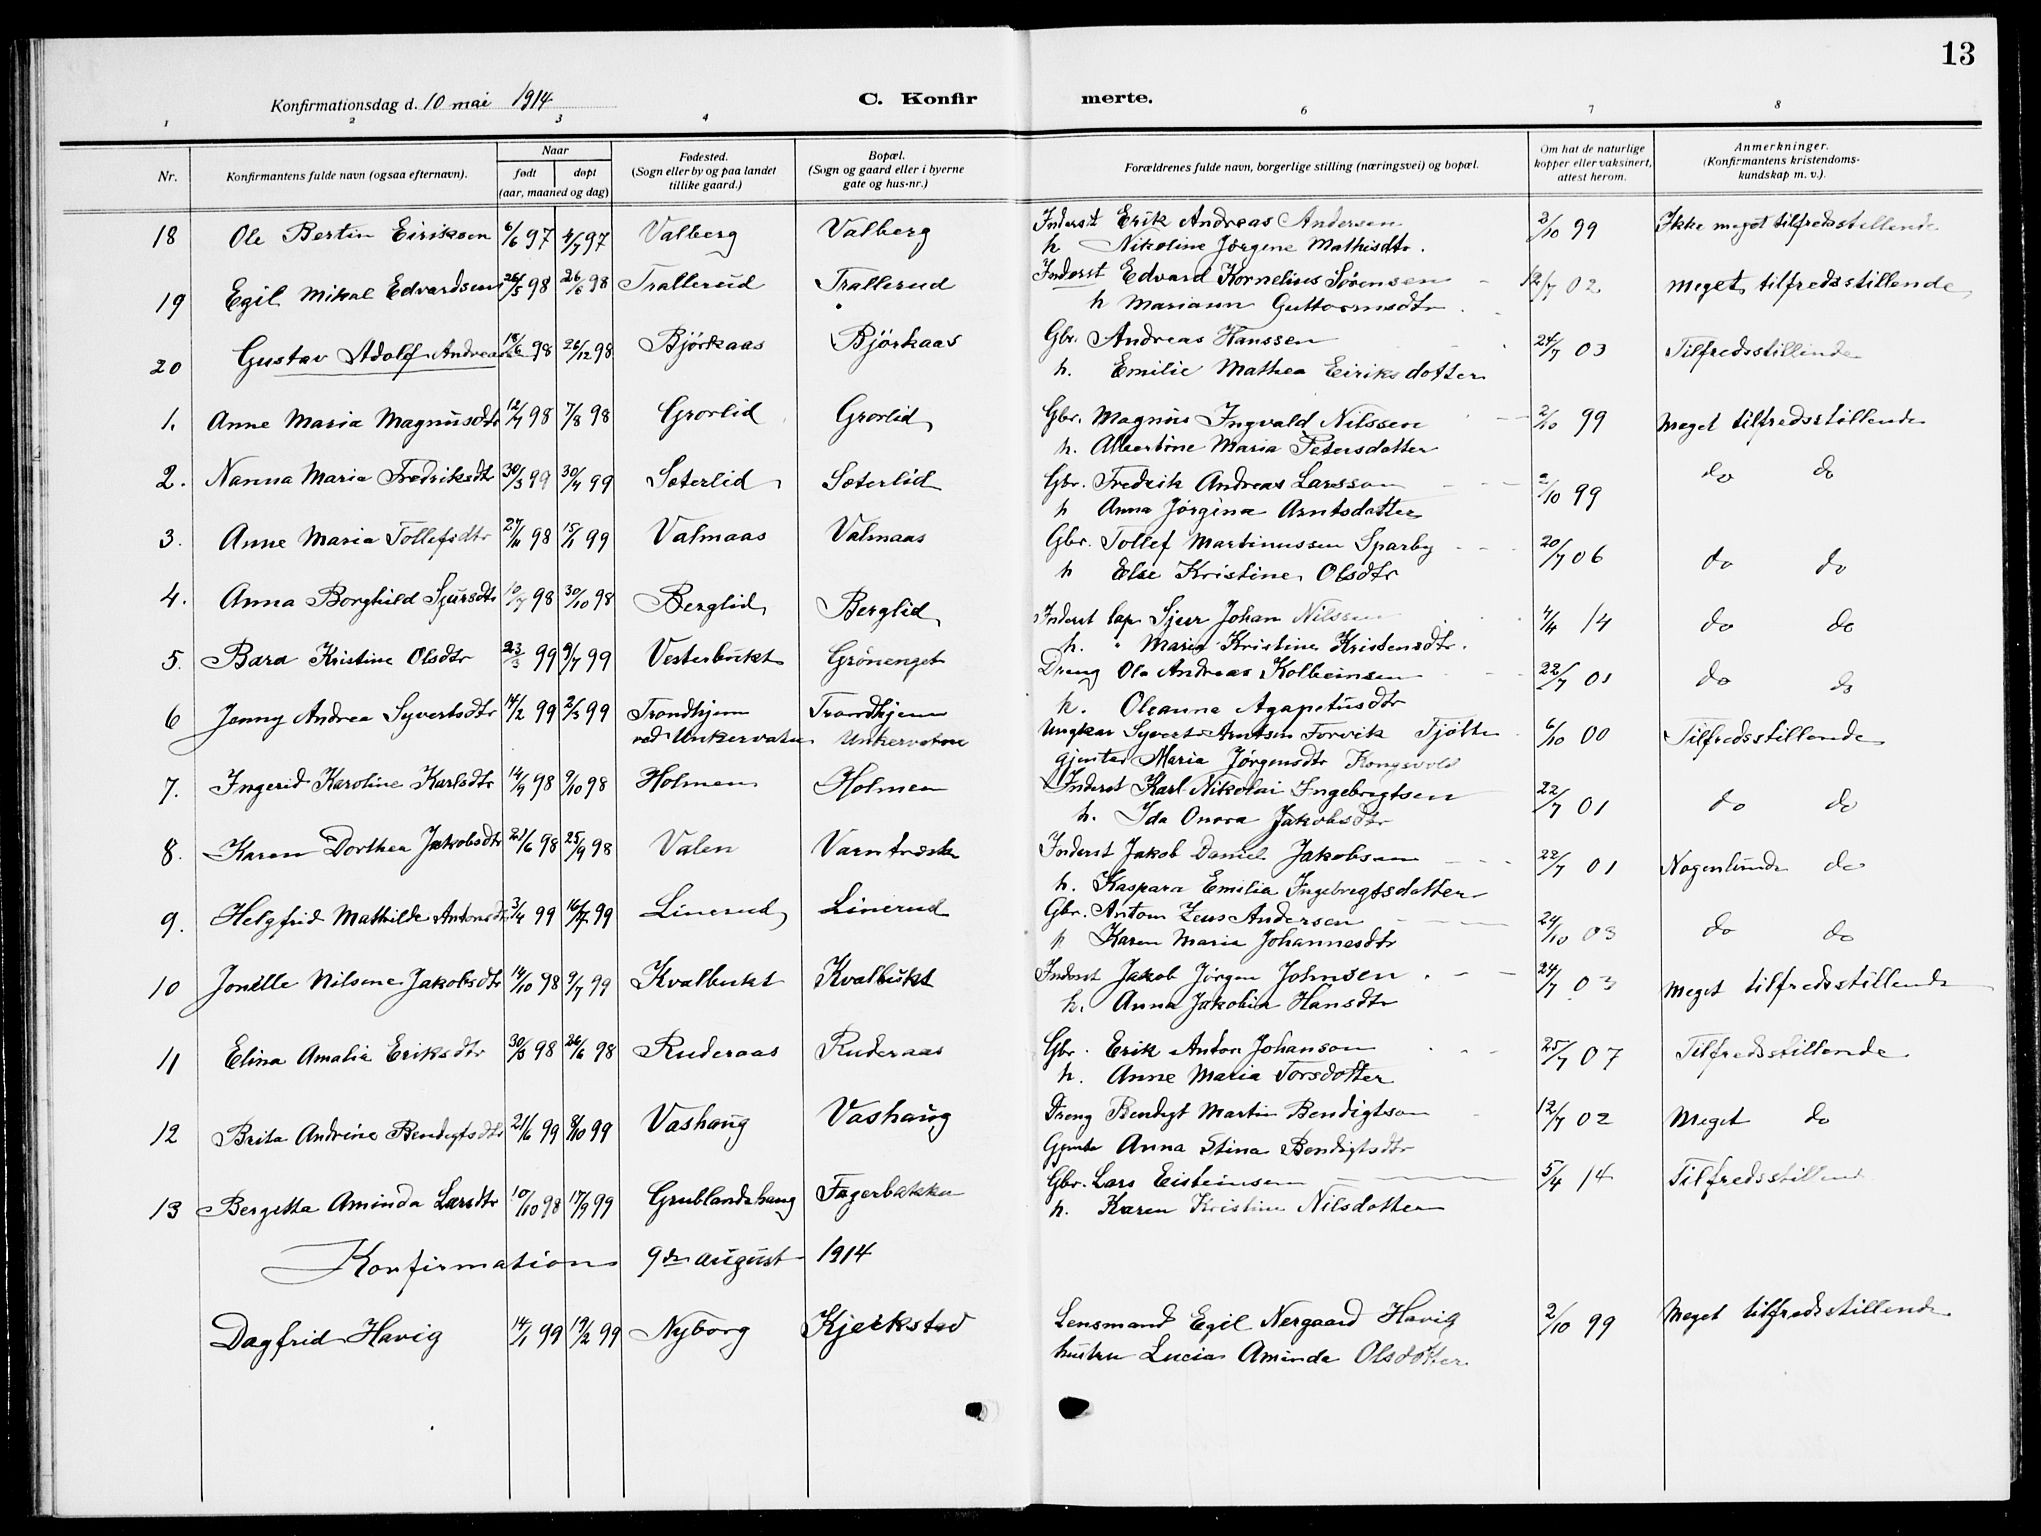 13
Konfirmationsdag d. 10 mai 1914
C. Konfirmerte.
1 2 3 4 6 7 8
Nr.
Konfirmantens fulde navn (ogsaa efternavn).
Naar
født døpt
(aar, maaned og dag)
Fødested.
(Sogn eller by og paa landet
tillike gaard.)
Bopæl.
(Sogn og gaard eller i byerne
gate og hus-nr.)
Forældrenes fulde navn, borgerlige stilling (næringsvei) og bopæl.
Om hat de naturlige
kopper eller vaksinert,
attest herom.
Anmerkninger.
(Konfirmantens kristendoms-
kundskap m. v.).
18 Ole Bertin Eiriksen 6/6 97 4/7 97 Valberg Valberg Inderst Erik Andreas Andersen 2/10 99 Ikke meget tilfredsstillende
h. Nikoline Jørgene Mathisdtr.
19 Egil Mikal Edvardsen 26/5 98 26/6 98 Trallerud Trallerud Inderst Edvard Kornelius Sørensen 12/7 02 Meget tilfredsstillende
h Mariann Guttormsdtr
20 Gustav Adolf Andreassen 98 26/12 98 Bjørkaas Bjørkaas Gbr. Andreas Hanssen 24/7 03 Tilfredsstillende
h. Emilie Mathea Eiriksdotter
1. Anne Maria Magnusdtr 12/7 98 7/8 98 Grorlid Grorlid Gbr. Magnus Ingvald Nilssen 2/10 99 Meget tilfredsstillende
h. Albertine Maria Petersdotter
2. Nanna Maria Fredriksdtr 30/3 99 30/4 99 Sæterlid Sæterlid Gbr. Fredrik Andreas Larsson 2/10 99 do do
h Anna Jørgina Arntsdotter
3. Anne Maria Tollefsdtr 27/11 98 15/1 99 Valmaas Valmaas Gbr. Tollef Martinussen Sparby 20/7 06 do do
h Else Kristine Olsdtr
4. Anna Borghild Sjursdtr 10/7 98 30/10 98 Berglid Berglid Inderst lap Sjur Johan Nilssen 4/4 14 do do
h. " Maria Kristine Kristensdtr.
5. Bara Kristine Olsdtr 23/3 99 9/7 99 Vesterbukt Grönenget Dreng Ole Andreas Kolbeinsen 22/7 01 do do
h. Oleanna Agapetusdtr
6 Jenny Andrea Syvertsdtr 14/2 99 2/3 99 Trondhjem Trondhjem Ungkar Syvert Arntsen Forvik Tjøtta 6/10 00 Tilfredsstillende
ved Unkervatn Unkervatn gjenta Maria Jørgensdtr Kongsvold
7. Ingerid Karoline Karlsdtr 14/9 98 9/10 98 Holmen Holmen Inderst Karl Nikolai Ingebrigtsen 22/7 01 do do
h. Ida Onora Jakobsdtr
8. Karen Dorthea Jakobsdtr 21/6 98 25/9 98 Valen Varntræsk Inderst Jakob Daniel Jakobsen 22/7 01 Nogenlunde do
h. Kaspara Emilia Ingebregtsdotter
9. Helgfrid Mathilde Antonsdtr 3/4 99 16/7 99 Linerud Linerud Gbr. Anton Zeus Andersen 24/10 03 do do
h Karen Maria Johannesdtr
10 Jonille Nilsine Jakobsdtr 14/10 98 9/7 99 Kvalbukt Kvalbukt Inderst Jakob Jørgen Johnsen 24/7 03 Meget tilfredsstillende
h. Anna Jakobia Hansdtr
11 Elina Amalia Eriksdtr 30/3 98 26/6 98 Ruderaas Ruderaas Gbr. Erik Anton Johanson 25/7 07 Tilfredsstillende
h. Anne Maria Torsdotter
12 Brita Andrine Bendigtsdtr 21/6 99 8/10 99 Vashaug Vashaug Dreng Bendigt Martin Bendigtson 12/7 02 Meget do
Gjenta Anna Stina Bendigtsdtr
13 Bergetta Aminda Larsdtr 10/10 98 17/9 99 Grublandshaug Fagerbakken Gbr. Lars Eisteinsen 5/4 14 Tilfredsstillend
h. Karen Kristine Nilsdotter
Konfirmation 9de august 1914
Dagfrid Havig 14/1 99 19/2 99 Nyborg Kjerkstad Lensmand Egil Nergaard Havig 2/10 99 Meget tilfredsstillende
hustru Lucia Aminda Olsdotter